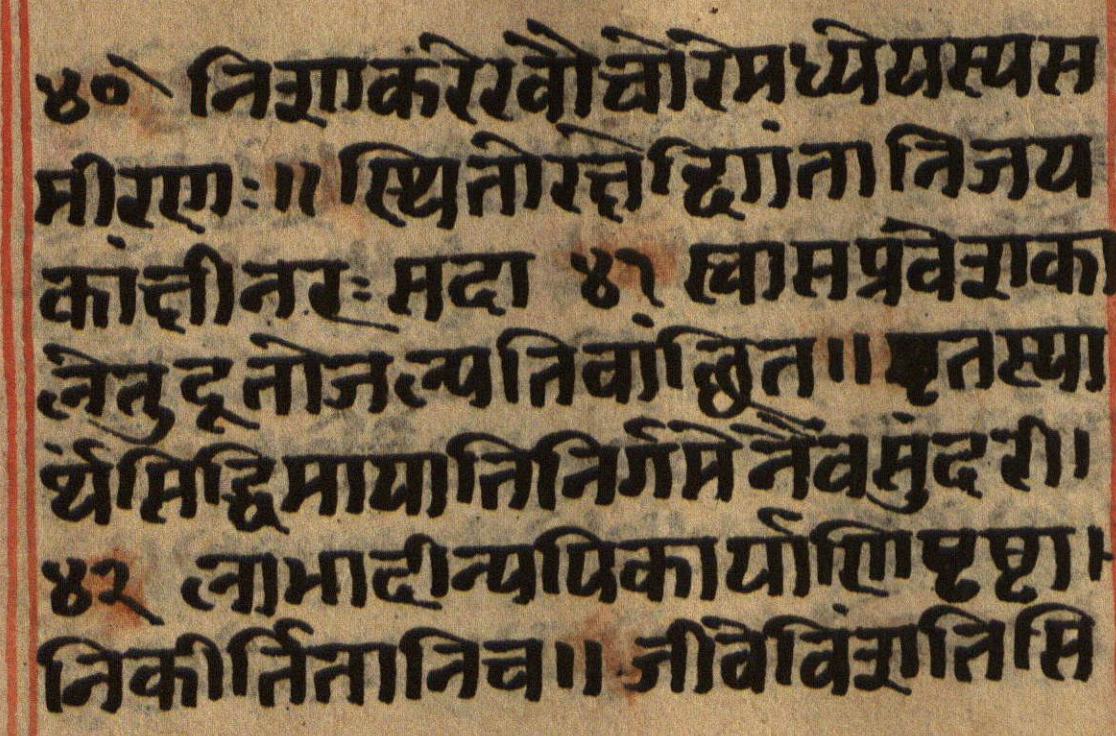 ४० निशाकरे रवौ चारे मध्ये यस्य स
मीरणः॥ स्थितो रक्षेद्दिगंतानि जय
कांक्षी नरः सदा ४१ श्वासप्रवेशका
लेतु दूतो जल्पति वांछित॥ तस्या
र्थसिद्धिमायाति निर्गमे नैव सुंदरी।
४२ लाभादीन्यपि कार्याणि पृष्टा
नि कीर्तितानि च॥ जीवे विशंति सि